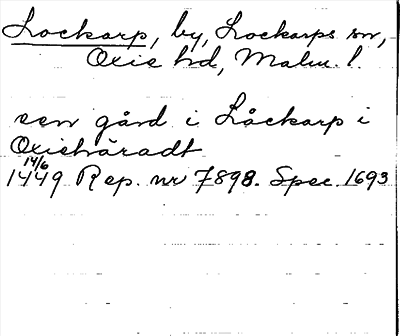 Lockarp, by, Lockarps sn,
Oxie hd, Malm. l.
een gård i Låckarp i
Oxiehäradt
14/6
1449 Rep. nr 7898. Spec. 1693